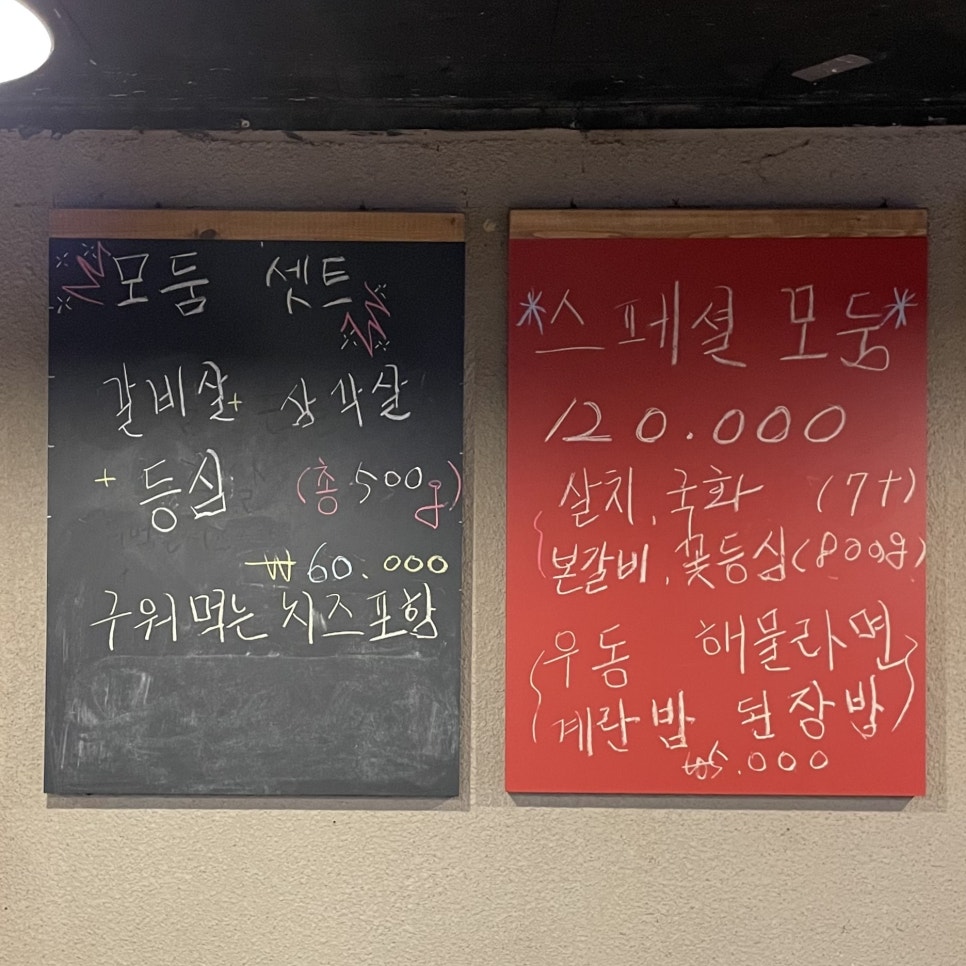 모둠 셋트
갈비살+ 삼각살
+ 등심 (총 500g)
₩60.000
구워먹는 치즈포함
*스페셜 모둠*
120.000
살치, 국화 (7+)
본갈비, 꽃등심(800g)
우동 해물라면
계란밥 된장밥
₩5.000